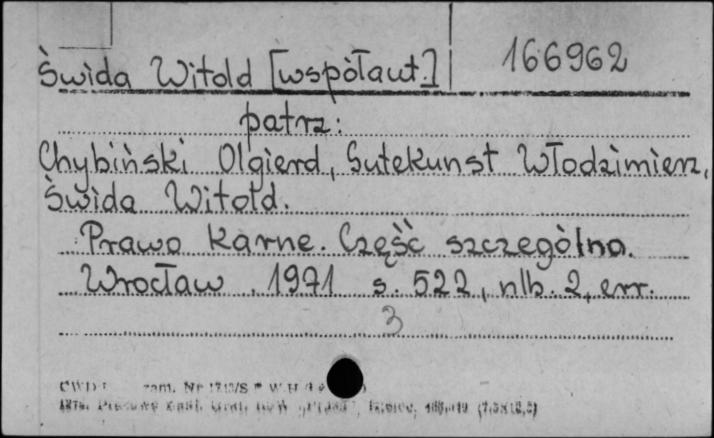 Świda Witold [współaut.] 166962
patrz:
Chybiński Olgierd, Gutekunst Włodzimierz,
Świda Witold.
Prawo karne. Część szczególna.
Wrocław . 1971 s. 522, nlb. 2, err.
3
CWD zam. Nr